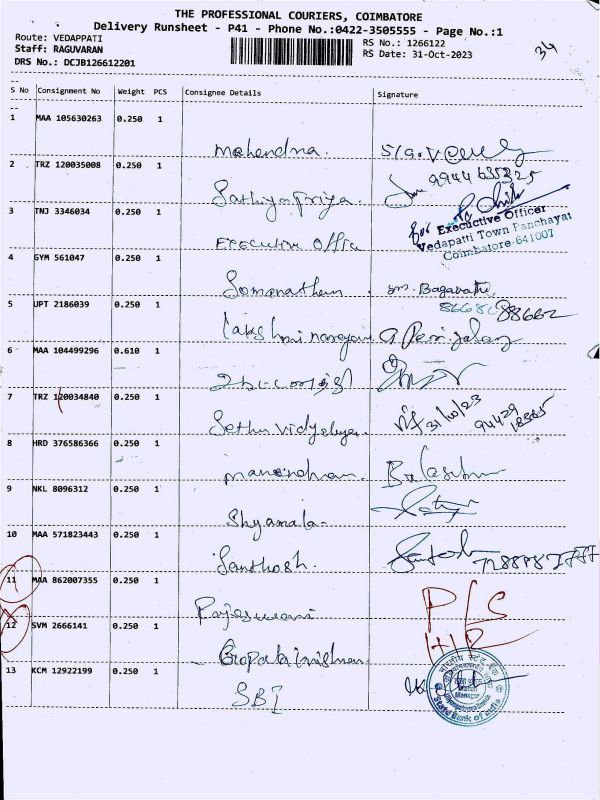 THE PROFESSIONAL COURIERS, COIMBATORE
Delivery Runsheet - P41 - Phone No.:0422-3505555 - Page No.:1
Route: VEDAPPATI
RS No.: 1266122
34
Staff: RAGUVARAN
RS Date: 31-Oct-2023
DRS No.: DCJB126612201
S No Consignment No Weight PCS Consignee Details Signature
1 MAA 105630263 0.250 1
Mahendra.
2 TRZ 120035008 0.250 1
Sathiyapriya.
3 TNJ 3346034 0.250 1
Executive Officer
Vedapatti Town Panchayat
Coimbatore-641007
4 GYM 561047 0.250 1
Somanathan. Bagavathi
5 UPT 2186039 0.250 1
88662
6 MAA 104499296 0.610 1
7 TRZ 120034840 0.250 1
Sethu Vidyalaya. 31/10/23
94429
8 HRD 376586366 0.250 1
manoharan.
9 NKL 8096312 0.250 1
Shyamala-
10 MAA 571823443 0.250 1
Santhosh. Santosh
11 MAA 862007355 0.250 1
Rajeswari P/S
12 SVM 2666141 0.250 1
Gopalakrishnan.
13 KCM 12922199 0.250 1
SBI
भारतीय स्टेट बैंक
State Bank of India